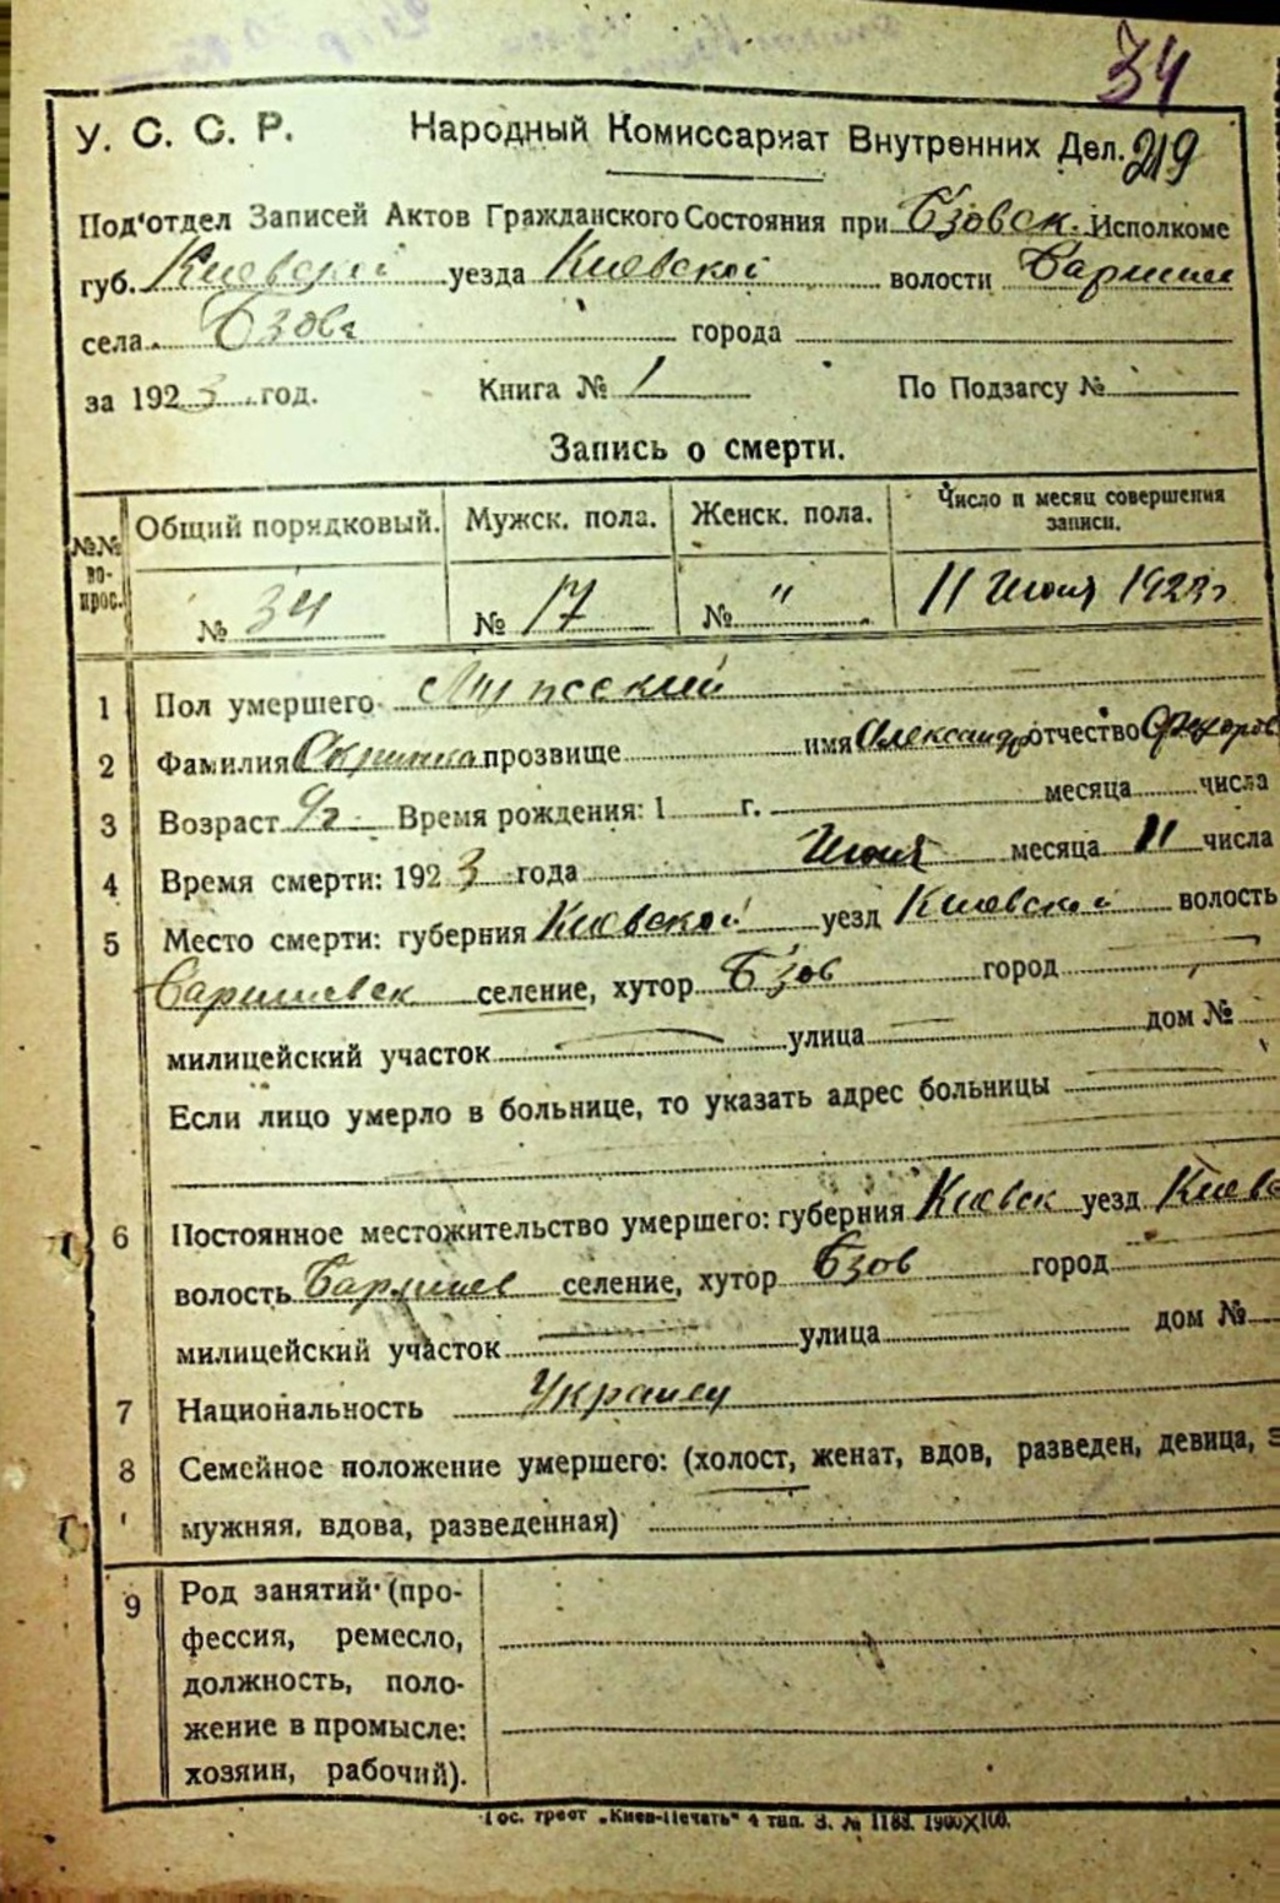 34
У. С. С. Р. Народный Комиссариат Внутренних Дел. 219
Под'отдел Записей Актов Гражданского Состояния при Бзовск. Исполкоме
губ. Киевской уезда Киевской волости Баришев
села Бзова города
за 1923 год. Книга № 1 По Подзагсу №
Запись о смерти.
№№ вопрос. Общий порядковый. Мужск. пола. Женск. пола. Число и месяц совершения записи.
№ 34 № 17 № " 11 Июня 1923 г
1 Пол умершего Мужеский
2 Фамилия прозвище имя Александр отчество Федоров
3 Возраст Время рождения: 1 г. месяца числа
4 Время смерти: 1923 года Июня месяца 11 числа
5 Место смерти: губерния Киевской уезд Киевской волость
Баришевск селение, хутор Бзов город
милицейский участок улица дом №
Если лицо умерло в больнице, то указать адрес больницы
6 Постоянное местожительство умершего: губерния Киевск уезд Киевс
волость Баришев селение, хутор Бзов город
милицейский участок улица дом №
7 Национальность Украинец
8 Семейное положение умершего: (холост, женат, вдов, разведен, девица, з
мужняя, вдова, разведенная)
9 Род занятий (про-
фессия, ремесло,
должность, поло-
жение в промысле:
хозяин, рабочий).
Гос. трест „Киев-Печать" 4 тип. З. № 1183. 1900Х100.